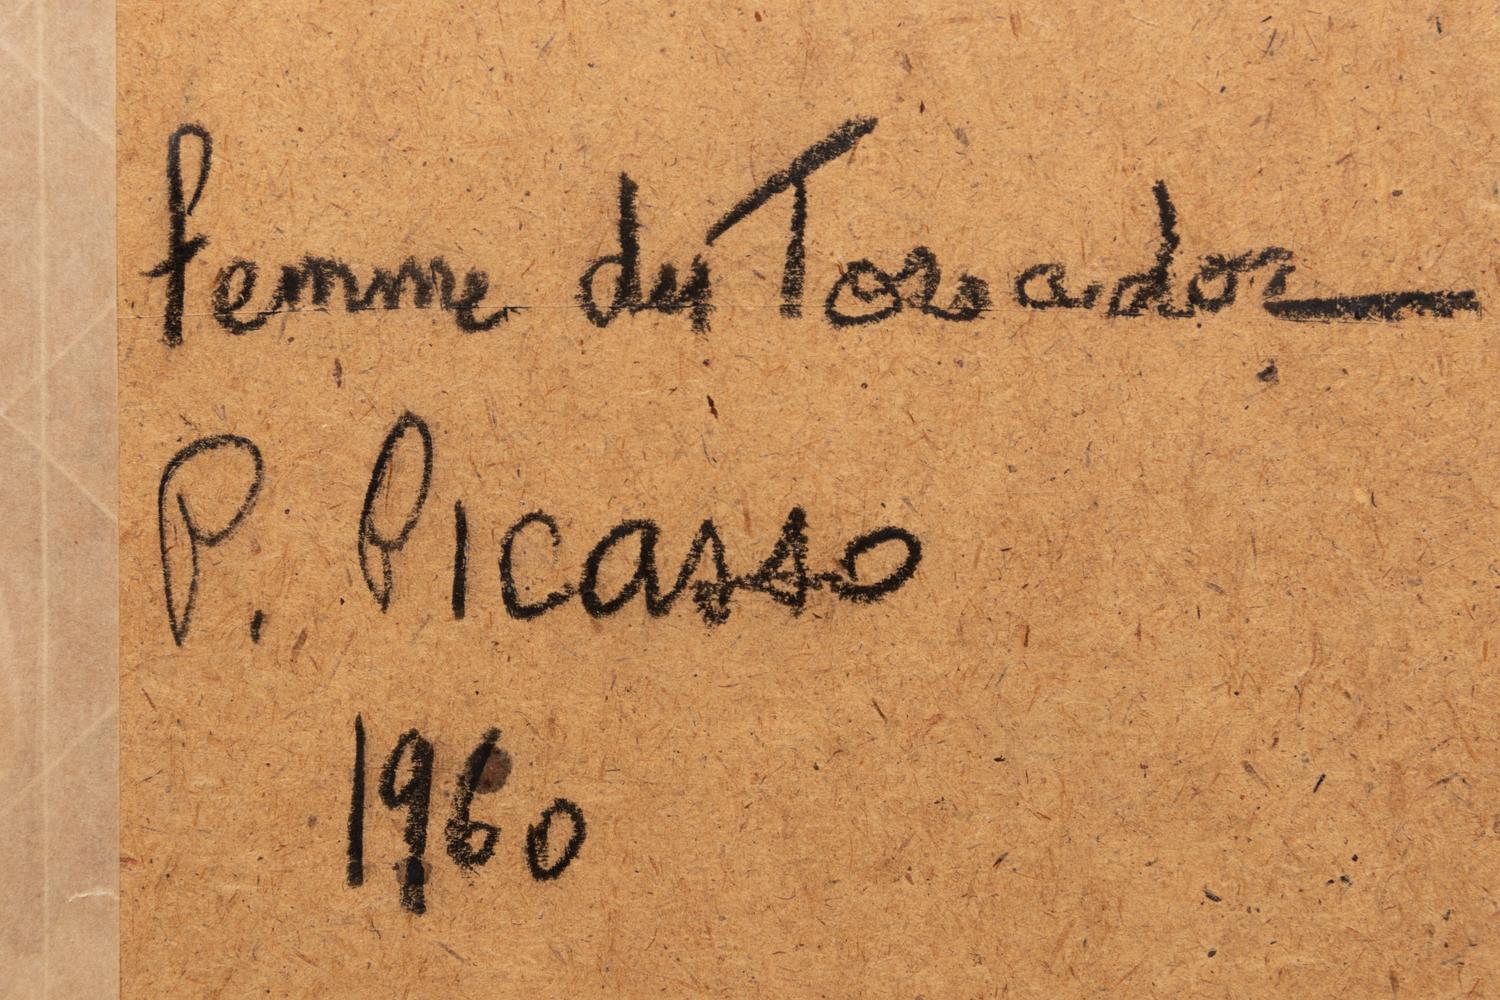 femme du Toreador
P. Picasso
1960